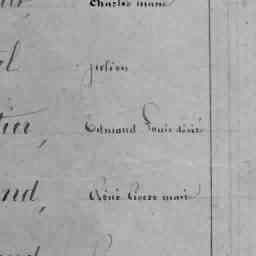 Charles marie
Julien
Edmond Louis désiré
René Pierre marie
nd,